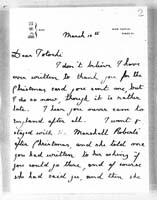 2
March 10th
Dear
I don't believe I have
ever written to thank you for the
Christmas card you sent me, but
I do so now though it is rather
late. I hear you never came to
England after all. I
stayed with Marshall Roberts'
after Christmas, and she told me
you had written to her asking if
you could go there and of course
she had said yes, and then she